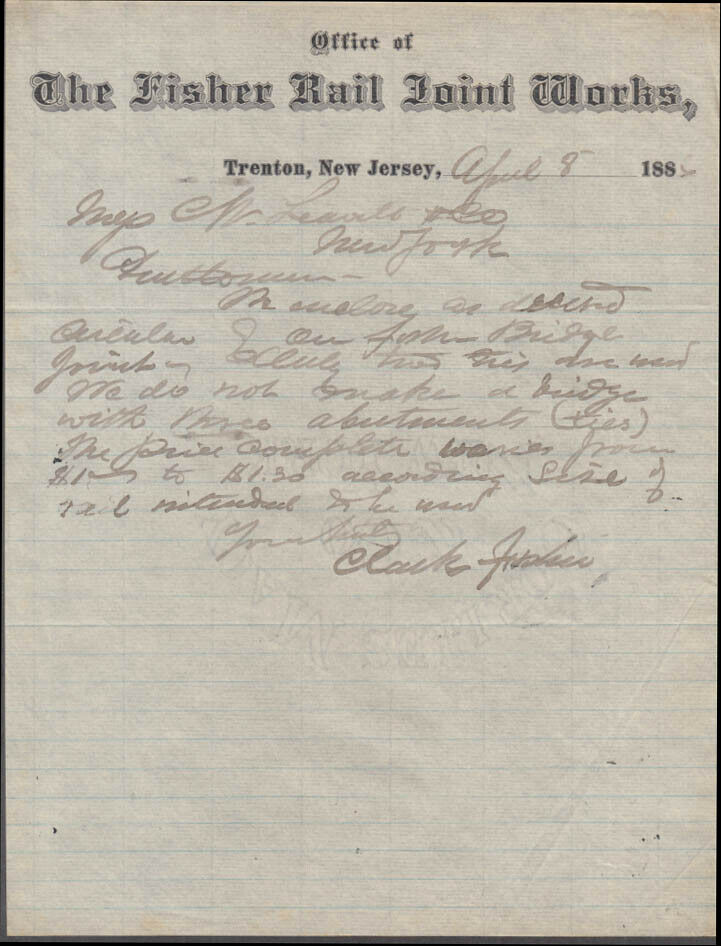 Office of
The Fisher Rail Joint Works,
Trenton, New Jersey, April 8 188
C W. Leavitt & Co
New York
Gentlemen -
We enclose as desired
circular of our Fisher Bridge
Joint - this are used
We do not make a bridge
with three abutments (ties)
The price complete varies from
to $1.30 according size of
rail intended to be used
Yours truly
Clark Fisher